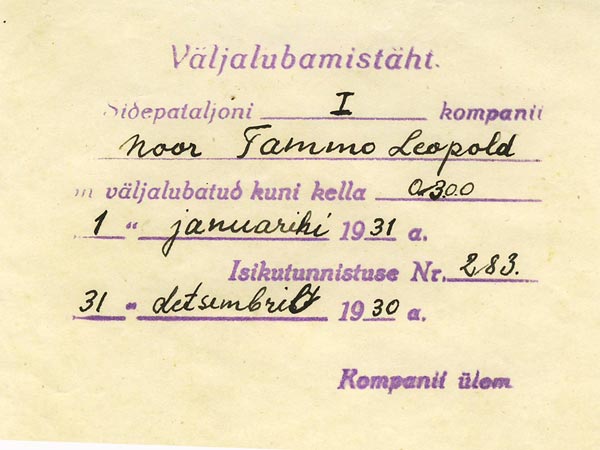 Väljalubamistäht.
Sidepataljoni I kompanii
noor Tammo Leopold
on väljalubatud kuni kella 0300
1 " januarini 1931 a.
Isikutunnistuse Nr. 283.
31 " detsembril 1930 a.
Kompanii ülem